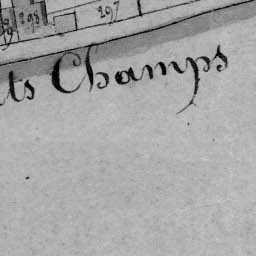 293
297
ts Champs